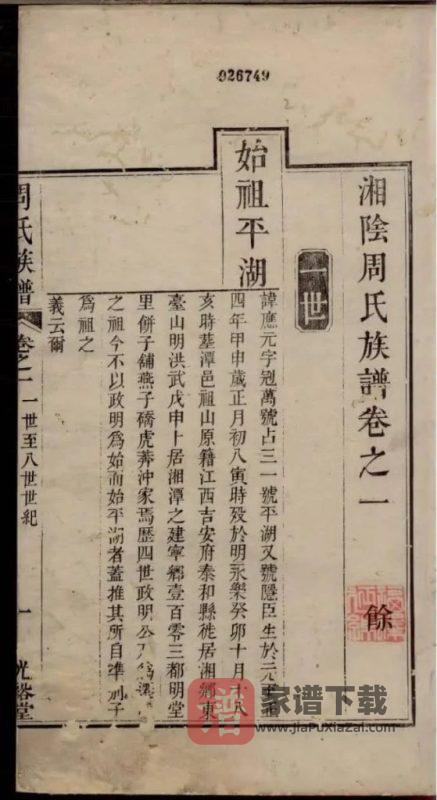 026749
湘陰周氏族譜卷之一
餘
一世
始祖平湖
諱應元字冠萬號占三一號平湖又號隱臣生於元
四年甲申歲正月初八寅時殁於明永樂癸卯十月
亥時墓潭邑祖山原籍江西吉安府泰和縣徙居湘鄉東
臺山明洪武戊申卜居湘潭之建寧鄉壹百零三都明堂
里餅子舖燕子礄虎莽沖家焉歷四世政明公
之祖今不以政明為始而始平湖者蓋推其所自準別子
為祖之
義云爾
周氏族譜
卷之一
一世至八世世紀
一
光裕堂
家谱下载
www.jiaPuXiaZai.com
谱